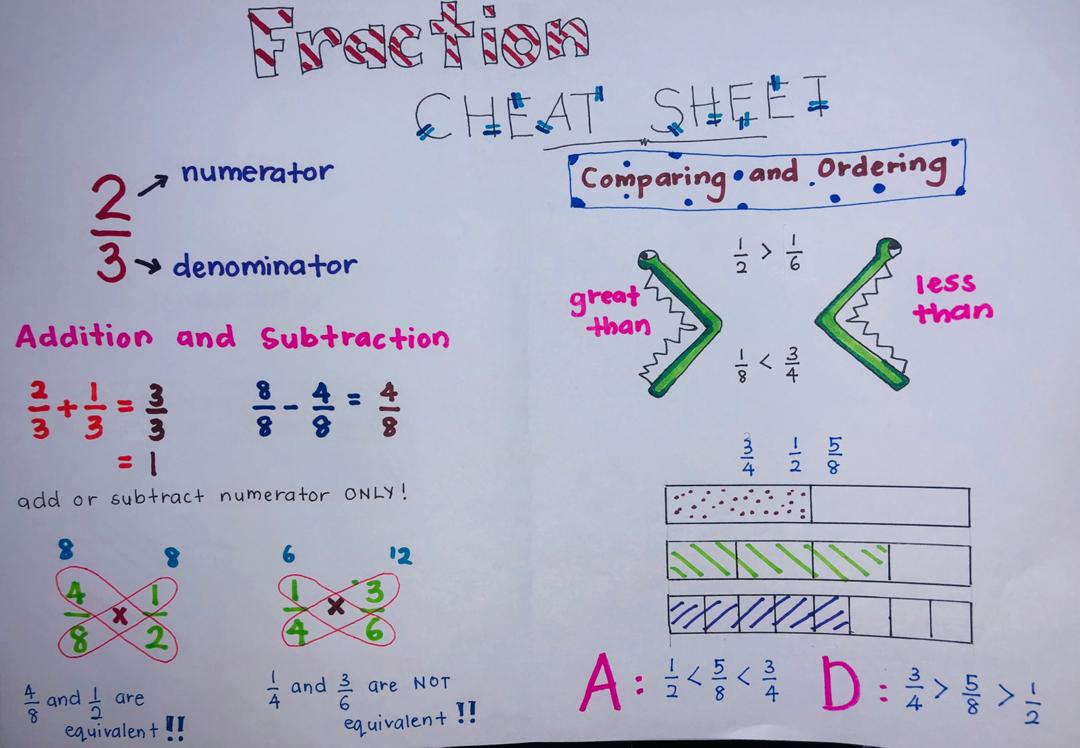 Fraction
CHEAT SHEET
2/3
numerator
denominator
Addition and Subtraction
2/3 + 1/3 = 3/3
= 1
8/8 - 4/8 = 4/8
add or subtract numerator ONLY!
8 8
4/8 x 1/2
4/8 and 1/2 are
equivalent !!
6 12
1/4 x 3/6
1/4 and 3/6 are NOT
equivalent !!
Comparing and Ordering
great
than
1/2 > 1/6
1/8 < 3/4
less
than
3/4 1/2 5/8
A: 1/2 < 5/8 < 3/4
D: 3/4 > 5/8 > 1/2